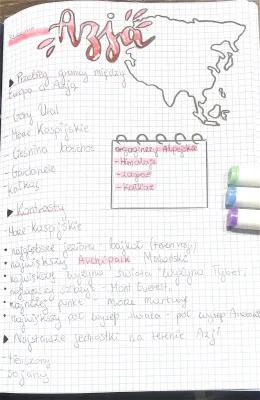 Azja
Przebieg granicy między
Europą a Azją
- Góry Ural
- Morze Kaspijskie
- Cieśnina bosfor
- Dardanele
Kaukaz
orogenezy Alpejska
- Himalaje
- zagros
- kaukaz
Kontrasty
Morze Kaspijskie
najgłębsze jezioro - bajkał
największy Archipelag Malajski
największy wyżyna świata Wyżyna Tybet.
najwyższy szczyt - Mont Everest.
najniższy punkt - morze martwe
największy pół wysep świata - pół wysep Arabski
Najstarsze jednostki na terenie Azji